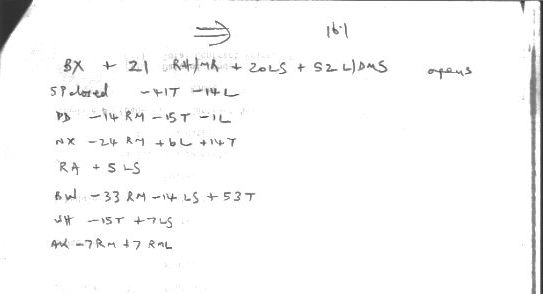 ⇒ 16.1
BX + 21 RH/MR + 20LS + 52 L/DMS opens
SP closed -41T -14L
PD -14 RM -15T -1L
NX -24 RM +6L +14T
RA + 5 LS
BW -33 RM -14 LS + 53T
WH -15T +7LS
AW -7RM +7 RML